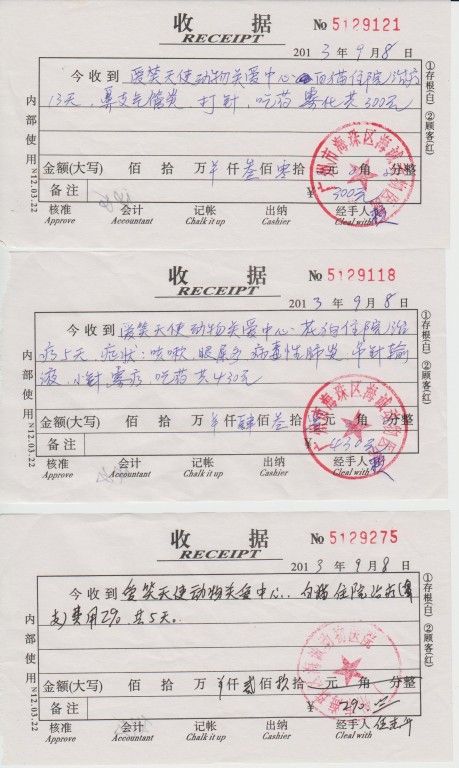 收 据
RECEIPT
No 5129121
2013年9月8日
今收到 爱笑天使动物关爱中心 白猫住院治疗
13天，鼻支气管炎 打针，吃药 雾化共300元
金额(大写) 佰 拾 万 ¥仟叁佰零拾 元 角 分整
备注 ¥ 300元
核准 会计 记帐 出纳 经手人
Approve Accountant Chalk it up Cashier Cleal with
内部使用 N12.03.22
①存根(白) ②顾客(红)
广州市海珠区海
收 据
RECEIPT
No 5129118
2013年9月8日
今收到 爱笑天使动物关爱中心 花猫住院治
疗5天，症状：咳嗽 眼屎多 病毒性肺炎 牛针输
液，小针 雾疗，吃药共430元
金额(大写) 佰 拾 万 ¥仟肆佰叁拾 元 角 分整
备注 ¥ 430元
核准 会计 记帐 出纳 经手人
Approve Accountant Chalk it up Cashier Cleal with
内部使用 N12.03.22
①存根(白) ②顾客(红)
海珠区海
收 据
RECEIPT
No 5129275
2013年9月8日
今收到 爱笑天使动物关爱中心，白猫住院治疗(鼻
支)费用290 共5天。
金额(大写) 佰 拾 万 ¥仟贰佰玖拾 元 角 分整
备注 ¥ 290
核准 会计 记帐 出纳 经手人
Approve Accountant Chalk it up Cashier Cleal with
内部使用 N12.03.22
①存根(白) ②顾客(红)